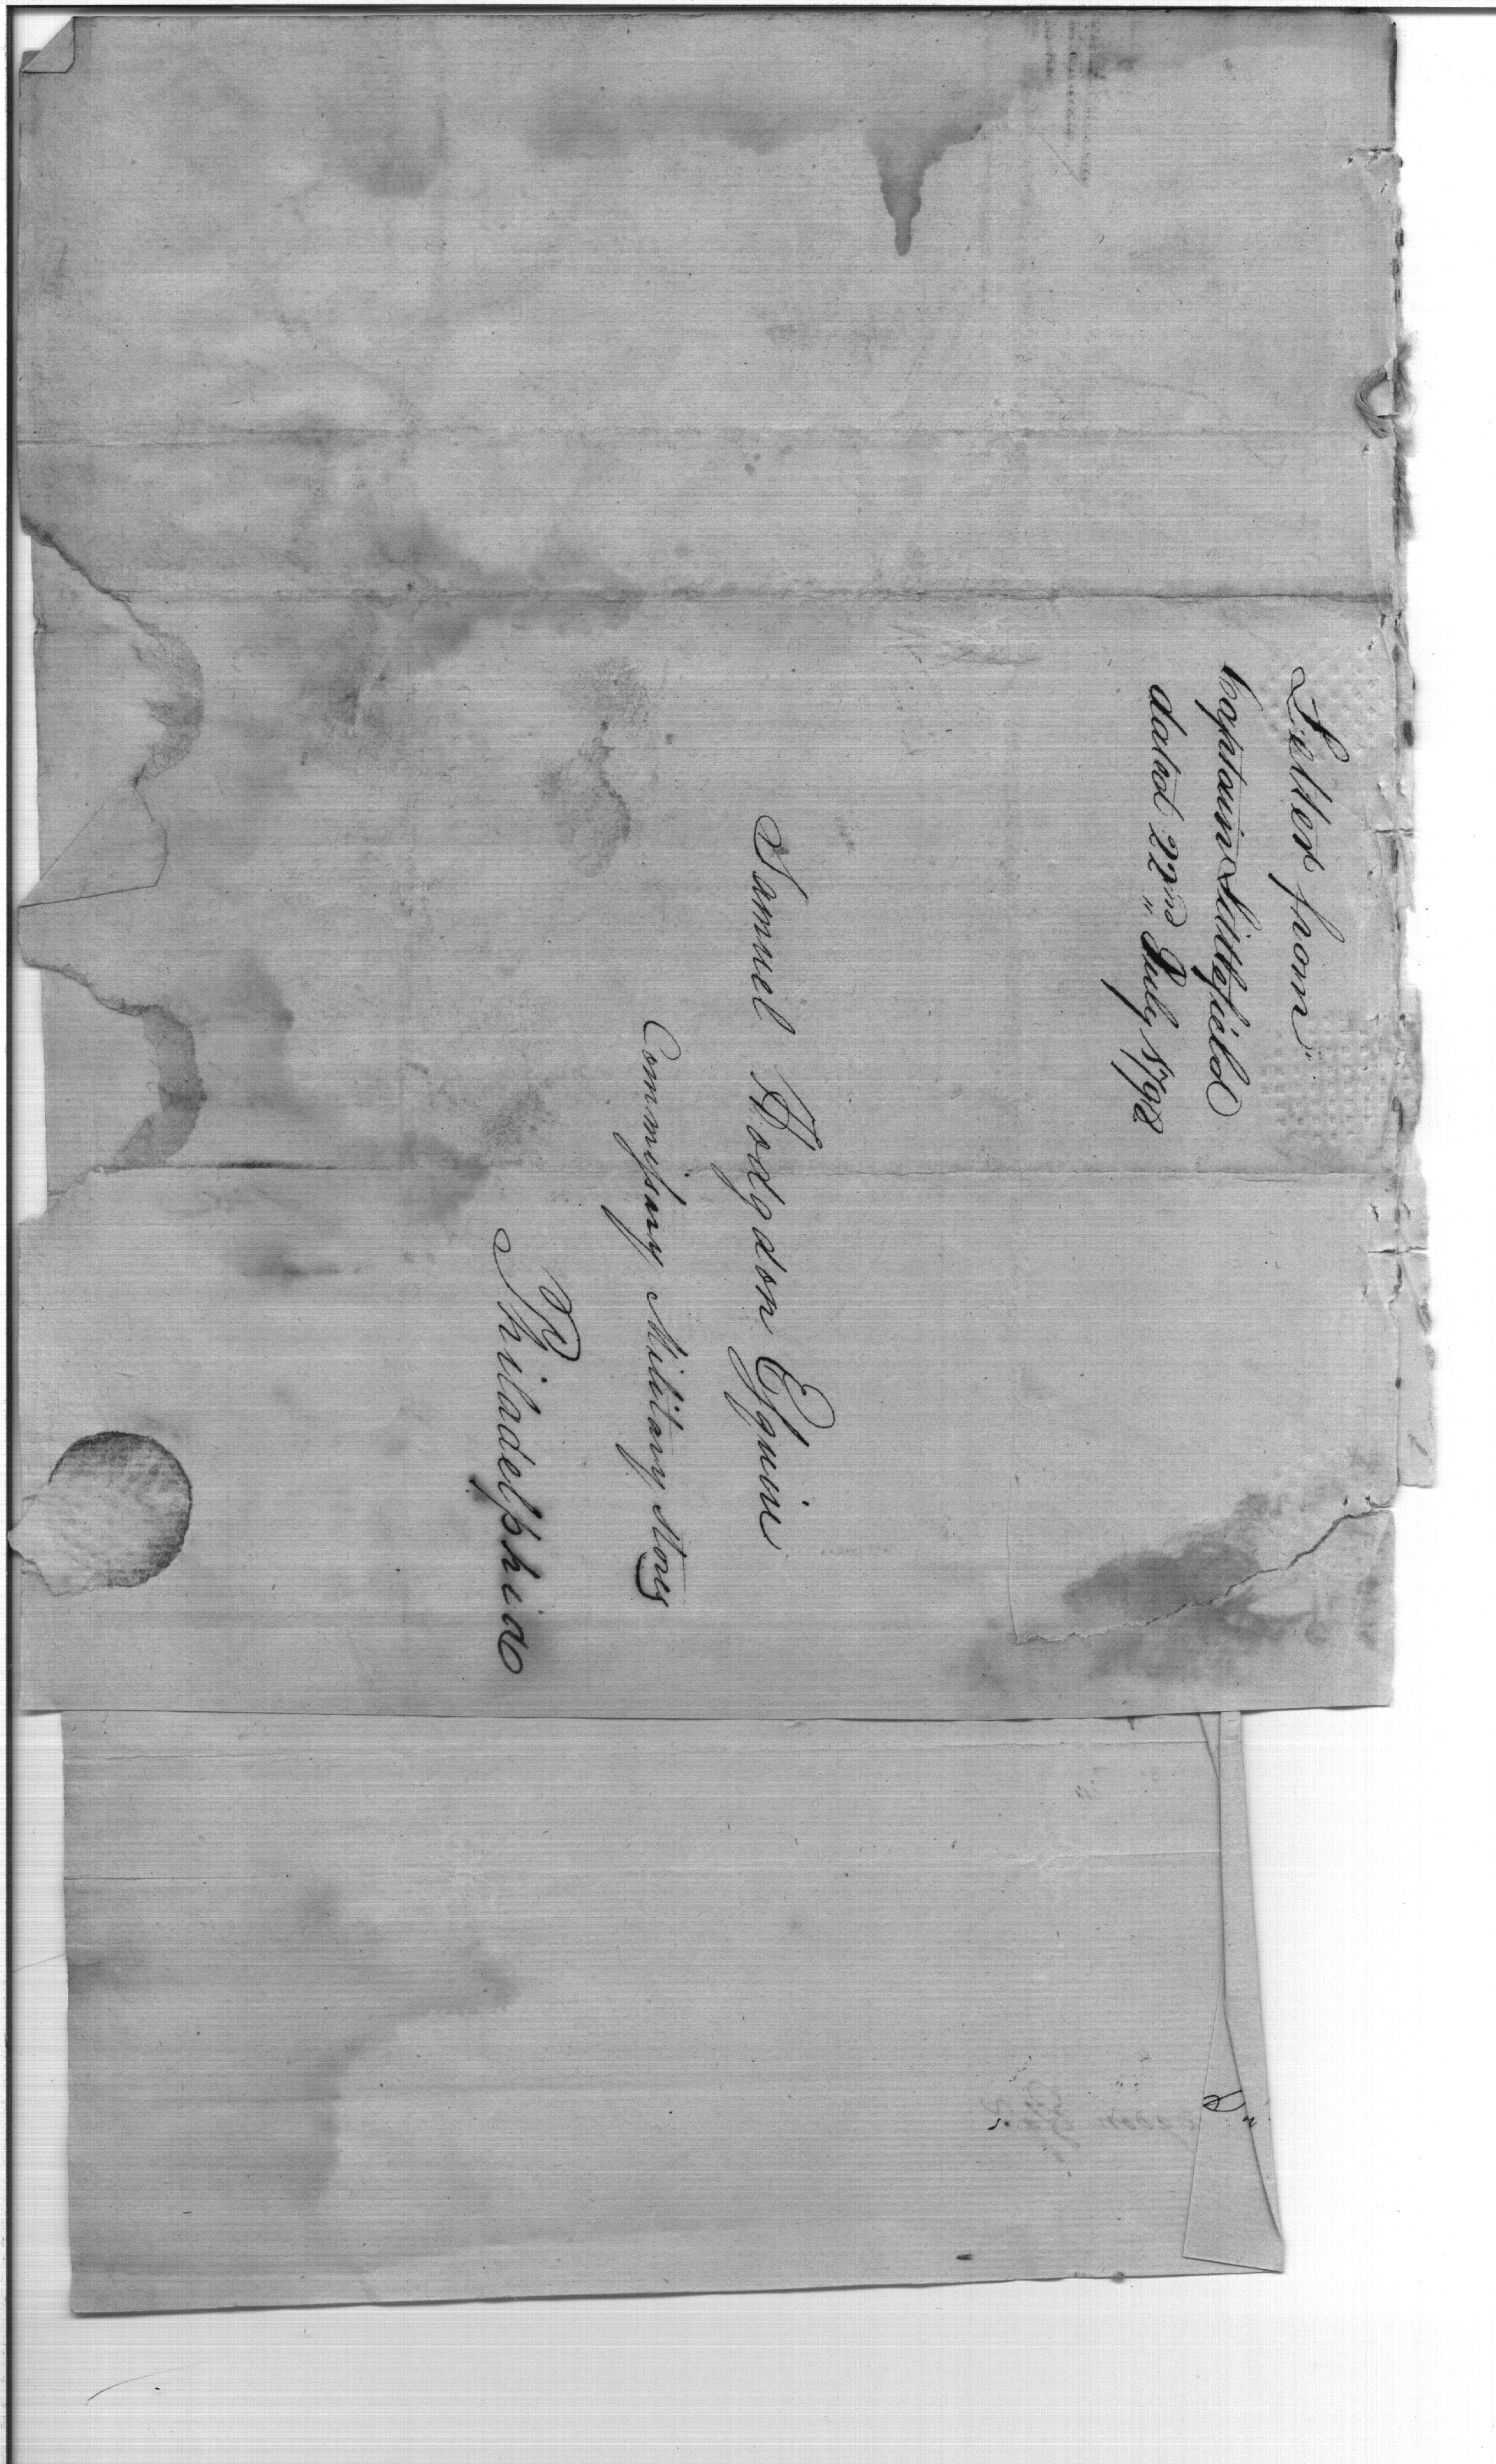 Letter from
Captain Littlefield
dated 22nd July 1798
Samuel Hodgdon Esquire
Commissary Military Stores
Philadelphia